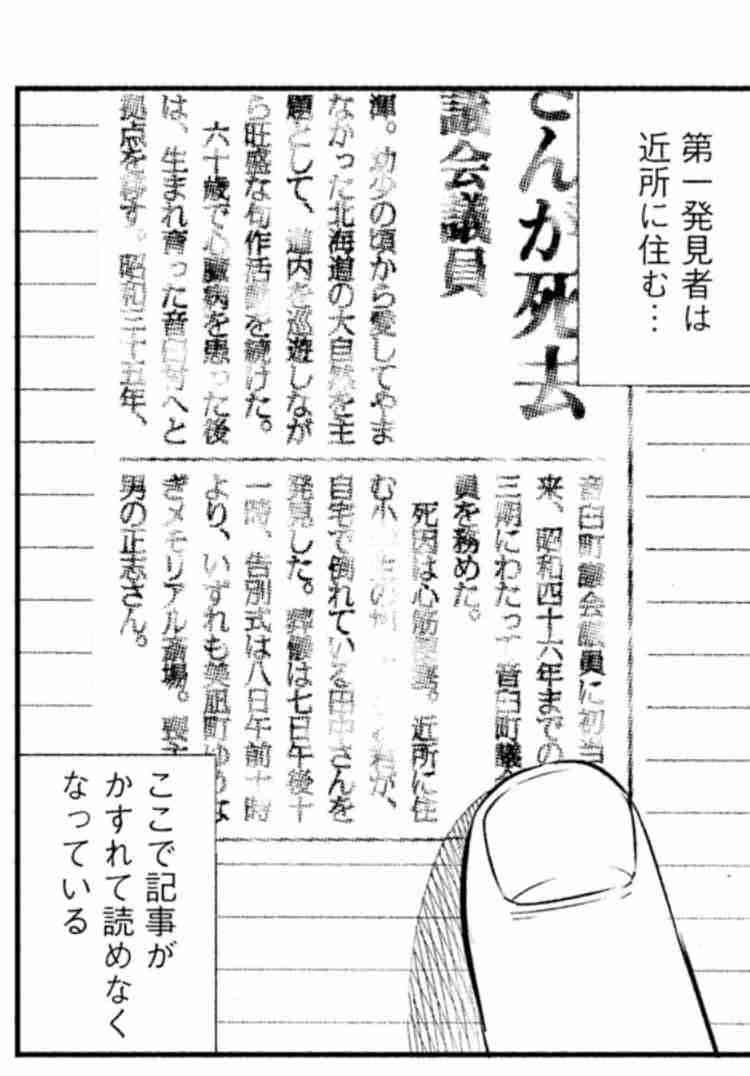 第一発見者は
近所に住む…
さんが死去
議会議員
揮。幼少の頃から愛してやま
なかった北海道の大自然を主
題として、道内を巡遊しなが
ら旺盛な句作活動を続けた。
六十歳で心臓病を患った後
は、生まれ育った音臼村へと
拠点を移す。昭和三十五年、
音臼町議会議員に初当
来、昭和四十六年までの
三期にわたって音臼町議会
員を務めた。
死因は心筋梗塞。近所に住
む小
が、
自宅で倒れている田中さんを
発見した。葬儀は七日午後十
一時、告別式は八日午前十時
より、いずれも美凪町
ぎメモリアル斎場。喪主
男の正志さん。
ここで記事が
かすれて読めなく
なっている